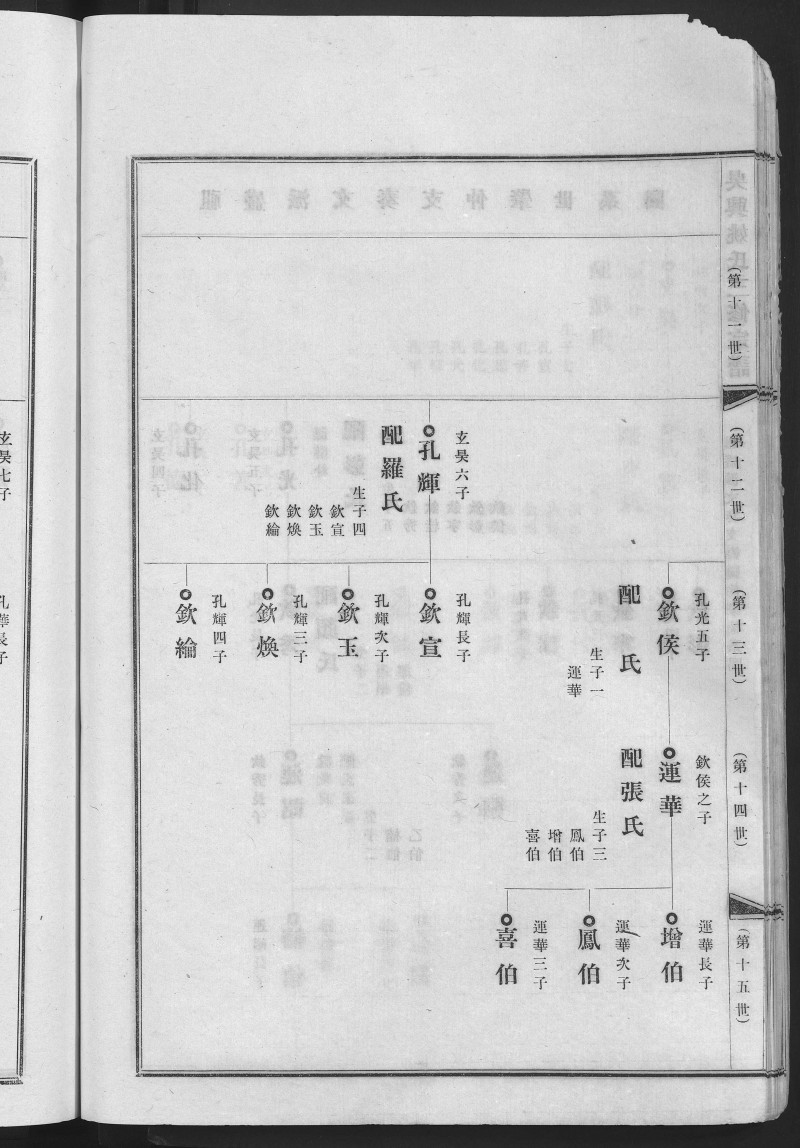 吳興姚氏
（第十一世）
（第十二世）
（第十三世）
（第十四世）
（第十五世）
玄昊六子
孔輝
配羅氏
生子四
欽宣
欽玉
欽煥
欽綸
孔光五子
欽侯
配　氏
生子一
運華
孔輝長子
欽宣
孔輝次子
欽玉
孔輝三子
欽煥
孔輝四子
欽綸
欽侯之子
運華
配張氏
生子三
鳳伯
增伯
喜伯
運華長子
增伯
運華次子
鳳伯
運華三子
喜伯
玄昊七子
孔華長子